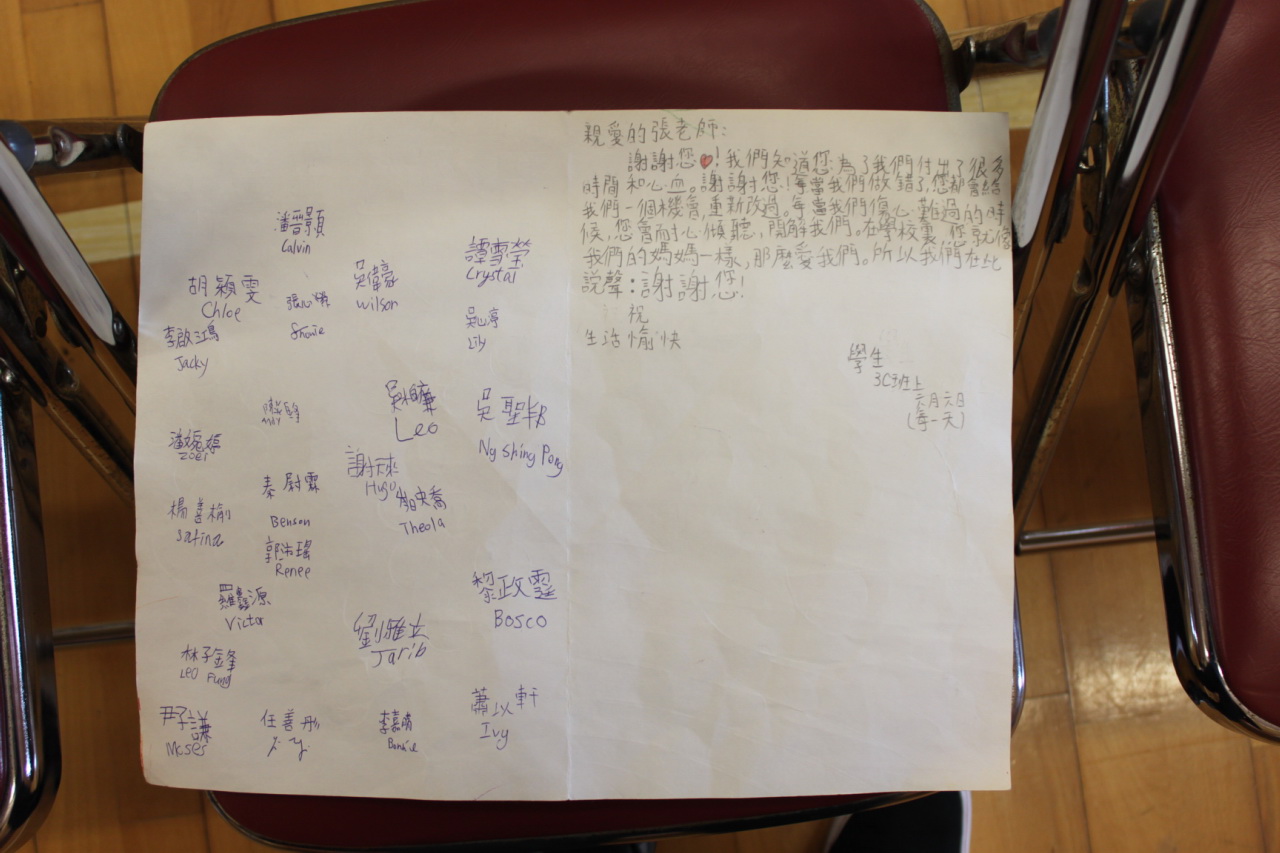 潘晋顥
Calvin
譚雪瑩
Crystal
胡穎雯
Chloe
張心
吳偉豪
Wilson
吳心渟
Lily
李啟鴻
Jacky
Leo
吳聖邦
Ng Shing Pong
潘
Zoei
謝天
Hugo
秦尉霖
Benson
喬
Theola
楊善榆
郭沛瑤
Renee
羅鑫源
Victor
黎政霆
Bosco
劉雅立
Jarib
林子鋒
Leo Fung
尹子謙
Moses
任善彤
李嘉
Bonnie
蕭以軒
Ivy
親愛的張老師：
謝謝您❤！我們知道您為了我們付出了很多
時間和心血。謝謝您！每當我們做錯了，您都會給
我們一個機會，重新改過。每當我們傷心、難過的時
候，您會耐心傾聽、開解我們。在學校裏，您就像
我們的媽媽一樣，那麼愛我們。所以我們在此
説聲：謝謝您！
祝
生活愉快
學生
3C班上
六月六日
(每一天)